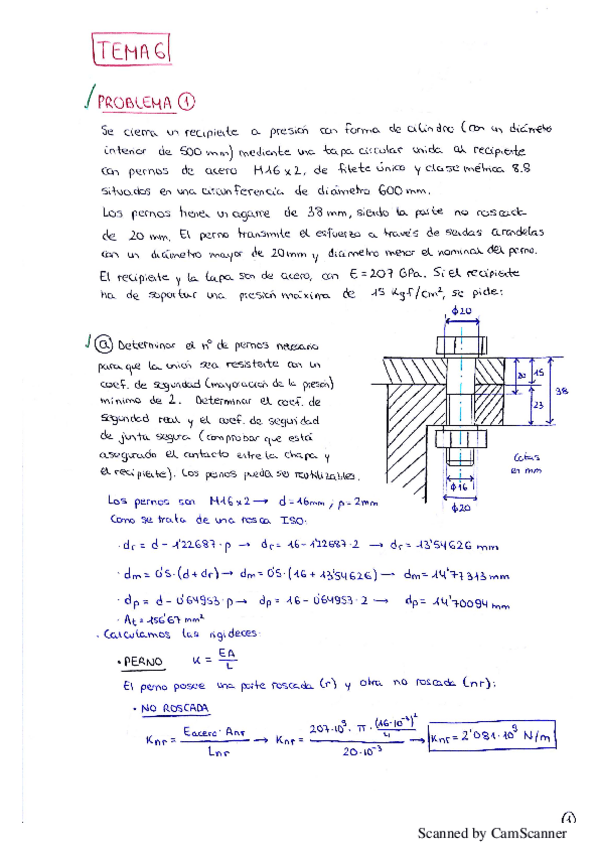 TEMA 6
PROBLEMA ①
Se cierra un recipiente a presión con forma de cilindro (con un diámetro
interior de 500 mm) mediante una tapa circular unida al recipiente
con pernos de acero M16x2, de filete único y clase métrica 8.8
situados en una circunferencia de diámetro 600 mm.
Los pernos tienen un agarre de 38 mm, siendo la parte no roscada
de 20 mm. El perno transmite el esfuerzo a través de sendas arandelas
con un diámetro mayor de 20 mm y diámetro menor el nominal del perno.
El recipiente y la tapa son de acero, con E=207 GPa. Si el recipiente
ha de soportar una presión máxima de 15 Kgf/cm², se pide:
ⓐ Determinar el nº de pernos necesario
para que la unión sea resistente con un
coef. de seguridad (mayoración de la presión)
mínimo de 2. Determinar el coef. de
seguridad real y el coef. de seguridad
de junta segura (comprobar que está
asegurado el contacto entre la chapa y
el recipiente). Los pernos pueda ser reutilizables.
ϕ20
20
15
23
38
Cotas
en mm
ϕ16
ϕ20
Los pernos son M16x2 → d=16mm ; p=2mm
Como se trata de una rosca ISO:
· dr = d - 1'22687·p → dr = 16 - 1'22687·2 → dr = 13'54626 mm
· dm = 0'5·(d+dr) → dm = 0'5·(16+13'54626) → dm = 14'77313 mm
· dp = d - 0'64953·p → dp = 16 - 0'64953·2 → dp = 14'70094 mm
· At = 156'67 mm²
· Calculamos las rigideces:
· PERNO K = EA/L
El perno posee una parte roscada (r) y otra no roscada (nr):
· NO ROSCADA
Knr = Eacero·Anr/Lnr → Knr = 207·10⁹·π·(16·10⁻³)²/4 / 20·10⁻³ → Knr = 2'081·10⁹ N/m
①
Scanned by CamScanner